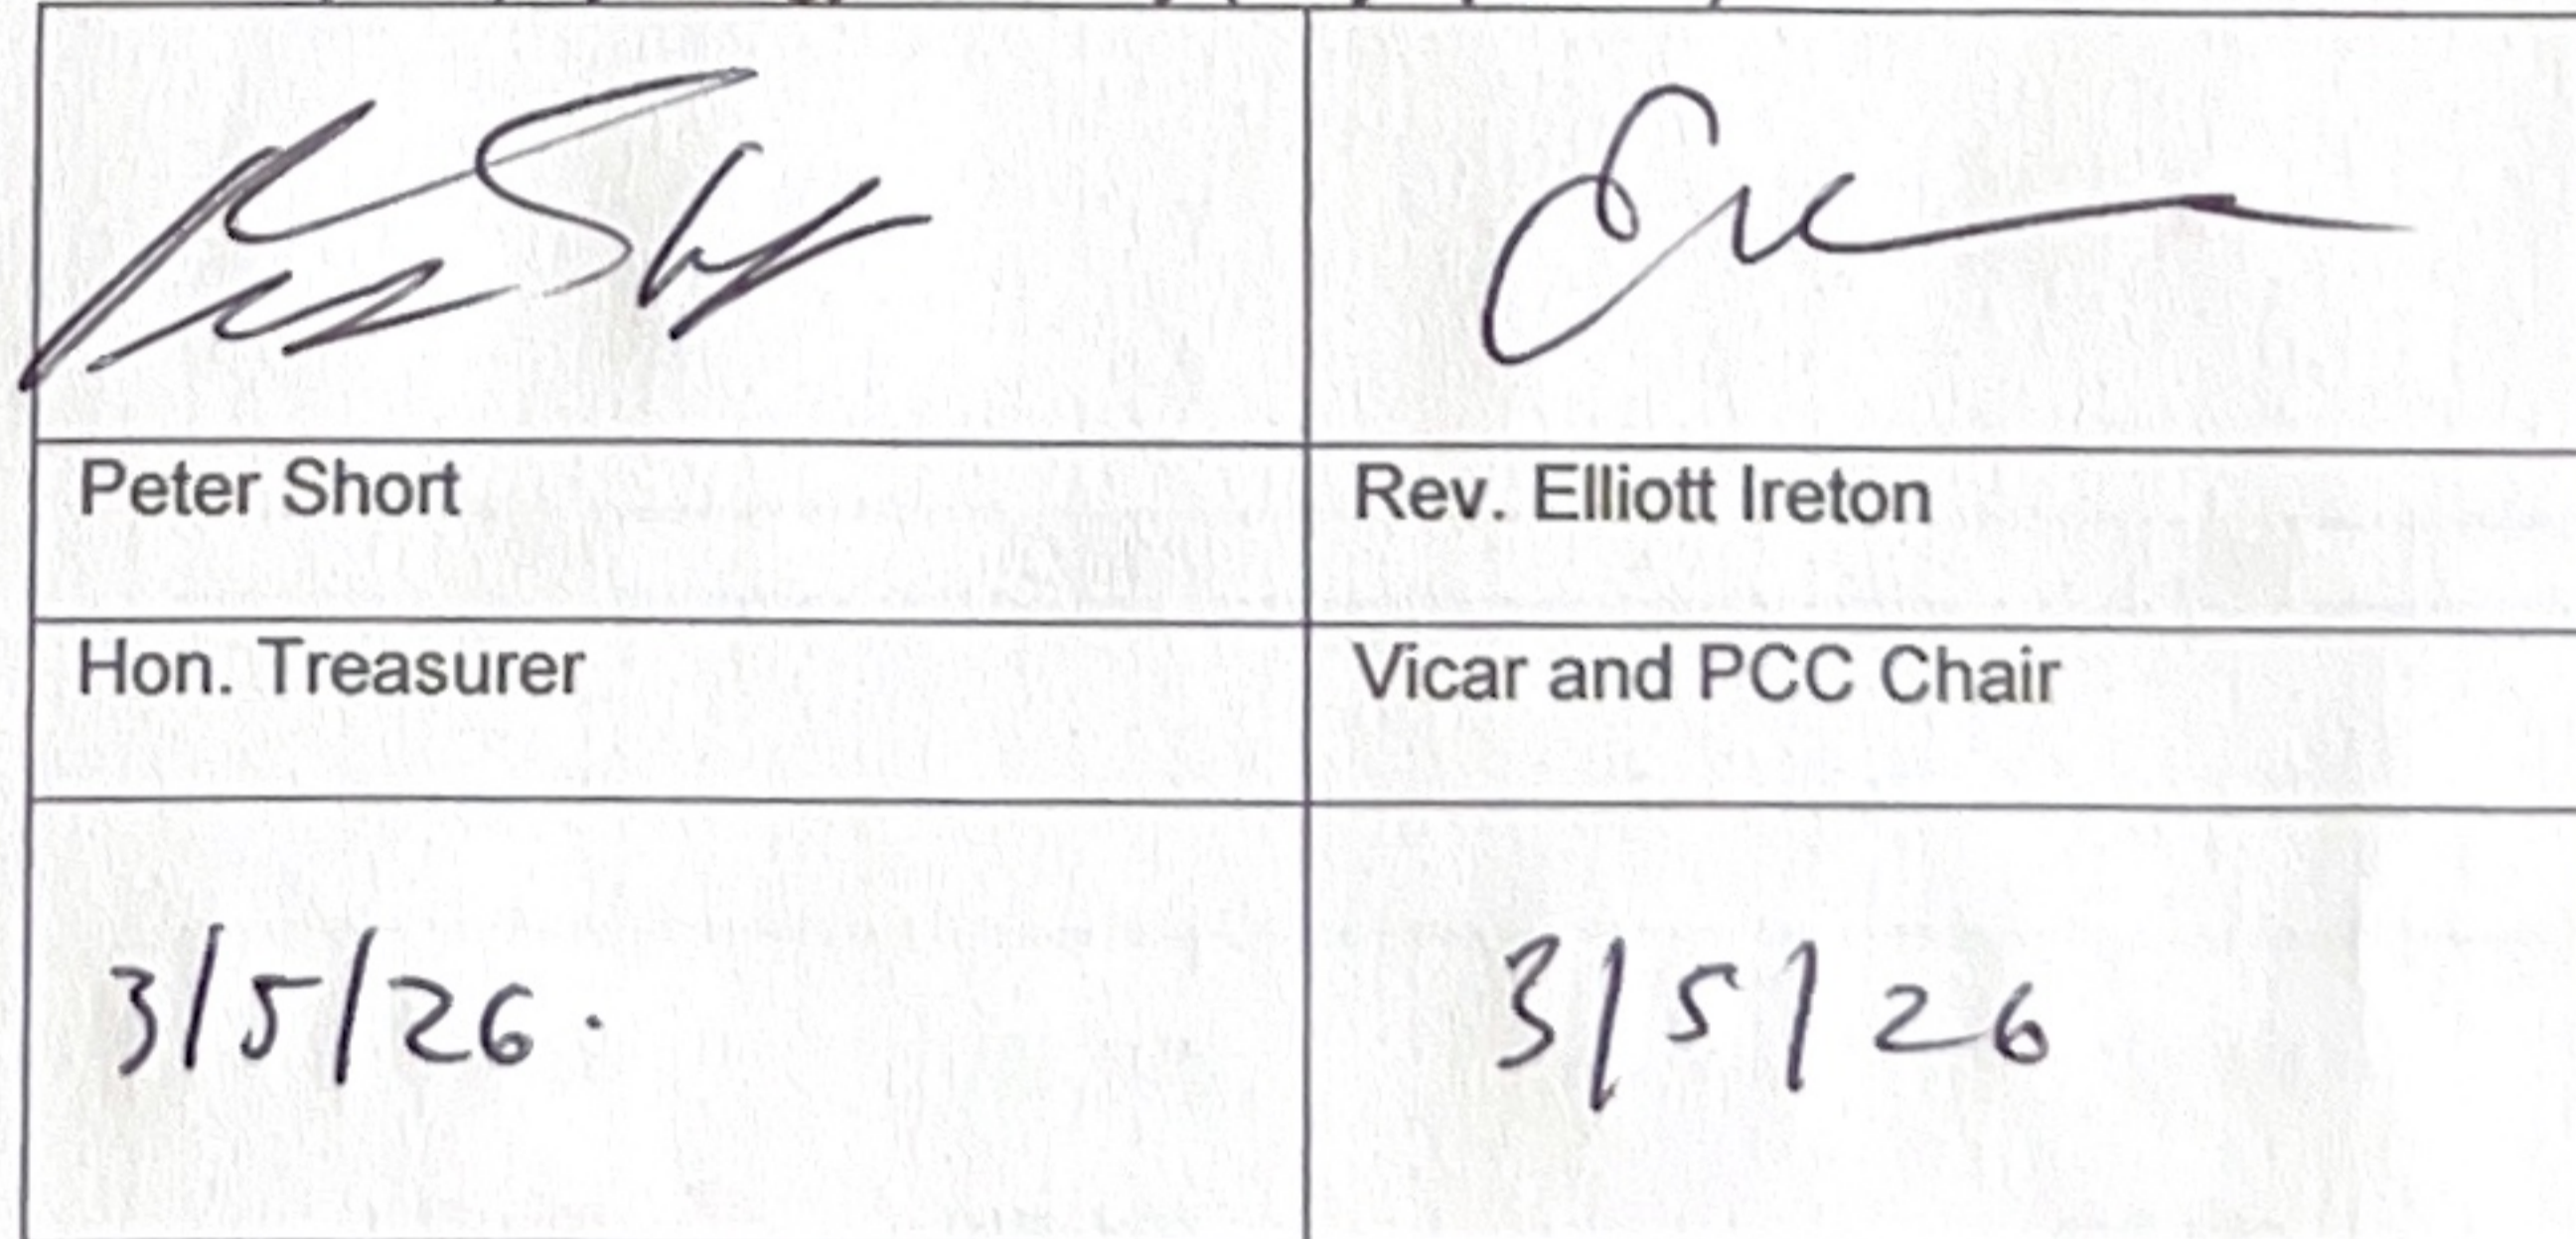 Peter Short
Rev. Elliott Ireton
Hon. Treasurer
Vicar and PCC Chair
3/5/26.
3/5/26